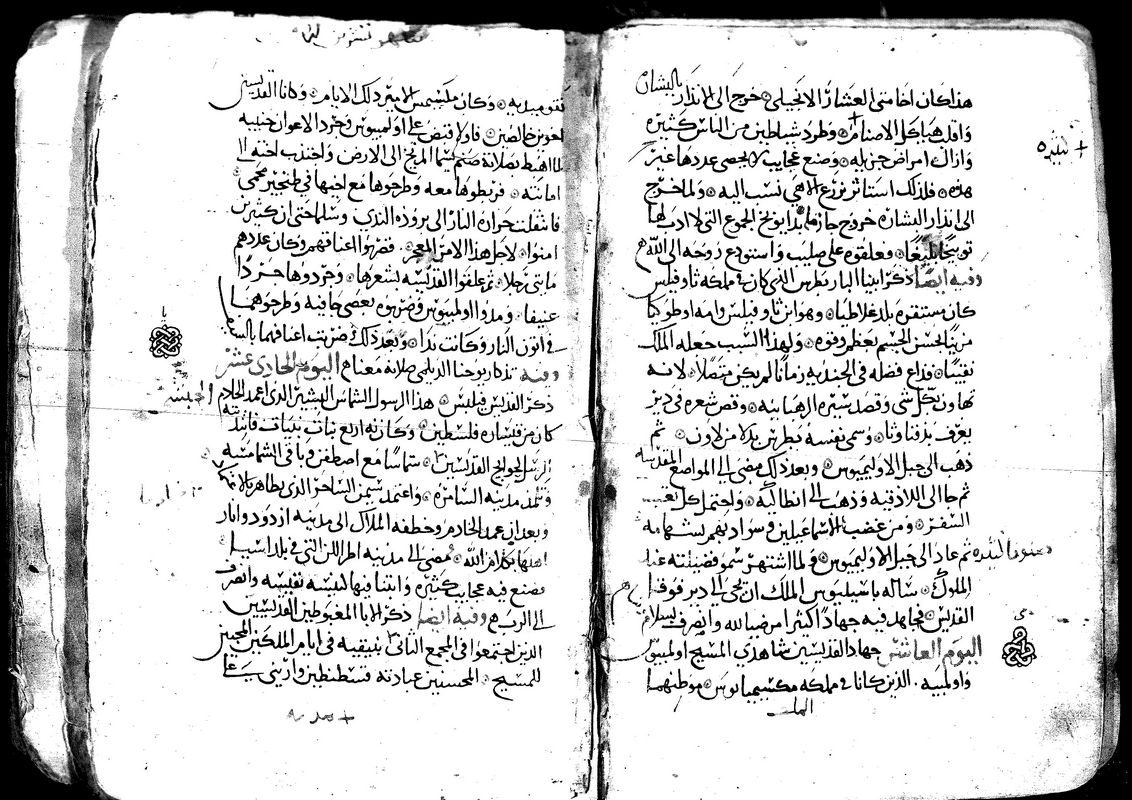 هذا كان اخا متى العشار الانجيلي خرج الى الانذار بالبشاره
وقلب هياكل الاصنام وطرد شياطين من الناس كثيره
وازال امراض جزيله وصنع عجايب لا يحصى عددها غير
هذه فلذلك استاثر بزرع الاهي نسب اليه ولما خرج
الى انذار البشاره خروج جازما بدا يوبخ الجموع التي لا ادب لها
توبيخا بليغا فعلقوه على صليب واستودع روحه الى الله
وفيه ايضا ذكر ابينا البار بطرس الذي كان في مملكه ثاوفيلس
كان مستقره بلد غلاطيا وهو ابن ثاوفيلس وامه اودوكيا
مزينا لحسن الجسم بعظم وقوه ولهذا السبب جعله الملك
نقيبا وذاع فضله في الجنديه زمانا لم يكن متصلا لانه
تهاون بكل شي وقصد سيره الرهبانيه وقص شعره في دير
يعرف بدفناوثا وسمى نفسه بطرس بدلا من لاون ثم
ذهب الى جبل الاوليمبوس وبعد ذلك مضى الى المواضع المقدسه
ثم جا الى اللاذقيه وذهب الى انطاليه واحتمل كل تعب
السفر ومن غضب الاسماعيلين وسواد بهم لشهامه
ثم عاد الى جبل الاوليمبوس ولما اشتهر سمو فضيلته عند
الملوك ساله باسيليوس الملك ان يجي الى دير فوقا
القديس فجاهد فيه جهادا كثيرا مرضيا لله وانصرف بسلام
اليوم العاشر جهاد القديسين شاهدي المسيح اولمبيوس
واولمبيه الذين كانا في مملكه مكسيميانوس موطنهما
نقوميديه وكان مكسيمس الامير ذلك الايام وكانا القديسين
اخوين خالصين فاول قبض على اولمبيوس وجرد الاعوان جنبيه
لما اهبط بصلاته صنم يسما المريخ الى الارض واجتذب اخته الى
امانته فربطوها معه وطرحوها مع اخيها في طنجير محمي
فانتقلت حراره النار الى بروده الندى وسلما حتى ان كثيرين
امنوا لاجل هذا الامر المعجز فضربوا اعناقهم وكان عددهم
مايتي رجلا ثم علقوا القديسه بشعرها وجردوها جردا
عنيفا ومدوا اولمبيوس وضربوه بعصي جافيه وطرحوهما
في اتون النار وكانت ندا وبعد ذلك ضربت اعناقهما بالسيف
وفيه تذكار يوحنا الديلمي صلاته معنا اليوم الحادي عشر
ذكر القديس فيلبس هذا الرسول الشماس البشير الذي اعمد الخادم الحبشي
كان من قيساريه فلسطين وكان له اربع بنات بنبيات فانبته
الرسل لحوايج القديسين شماسا مع اصطفن وباقي الشمامسه
وتلمذ مدينه السامره واعتمد سيمن الساحر الذي يظاهر بالامانه
وبعد ان عمد الخادم وخطفه الملاك الى مدينه ازدود وانار
اهلها بكلام الله مضى الى مدينه اطراللن التي في بلد اسيا
فصنع فيه عجايب كثيره وابتنا فيها كنيسه نفيسه وانصرف
الى الرب وفيه ايضا ذكر الابا المغبوطين القديسين
الذين اجتمعوا في المجمع الثاني بنيقيه في ايام الملكين المحبين
للمسيح المحسنين عبادته قسطنطين وارينى